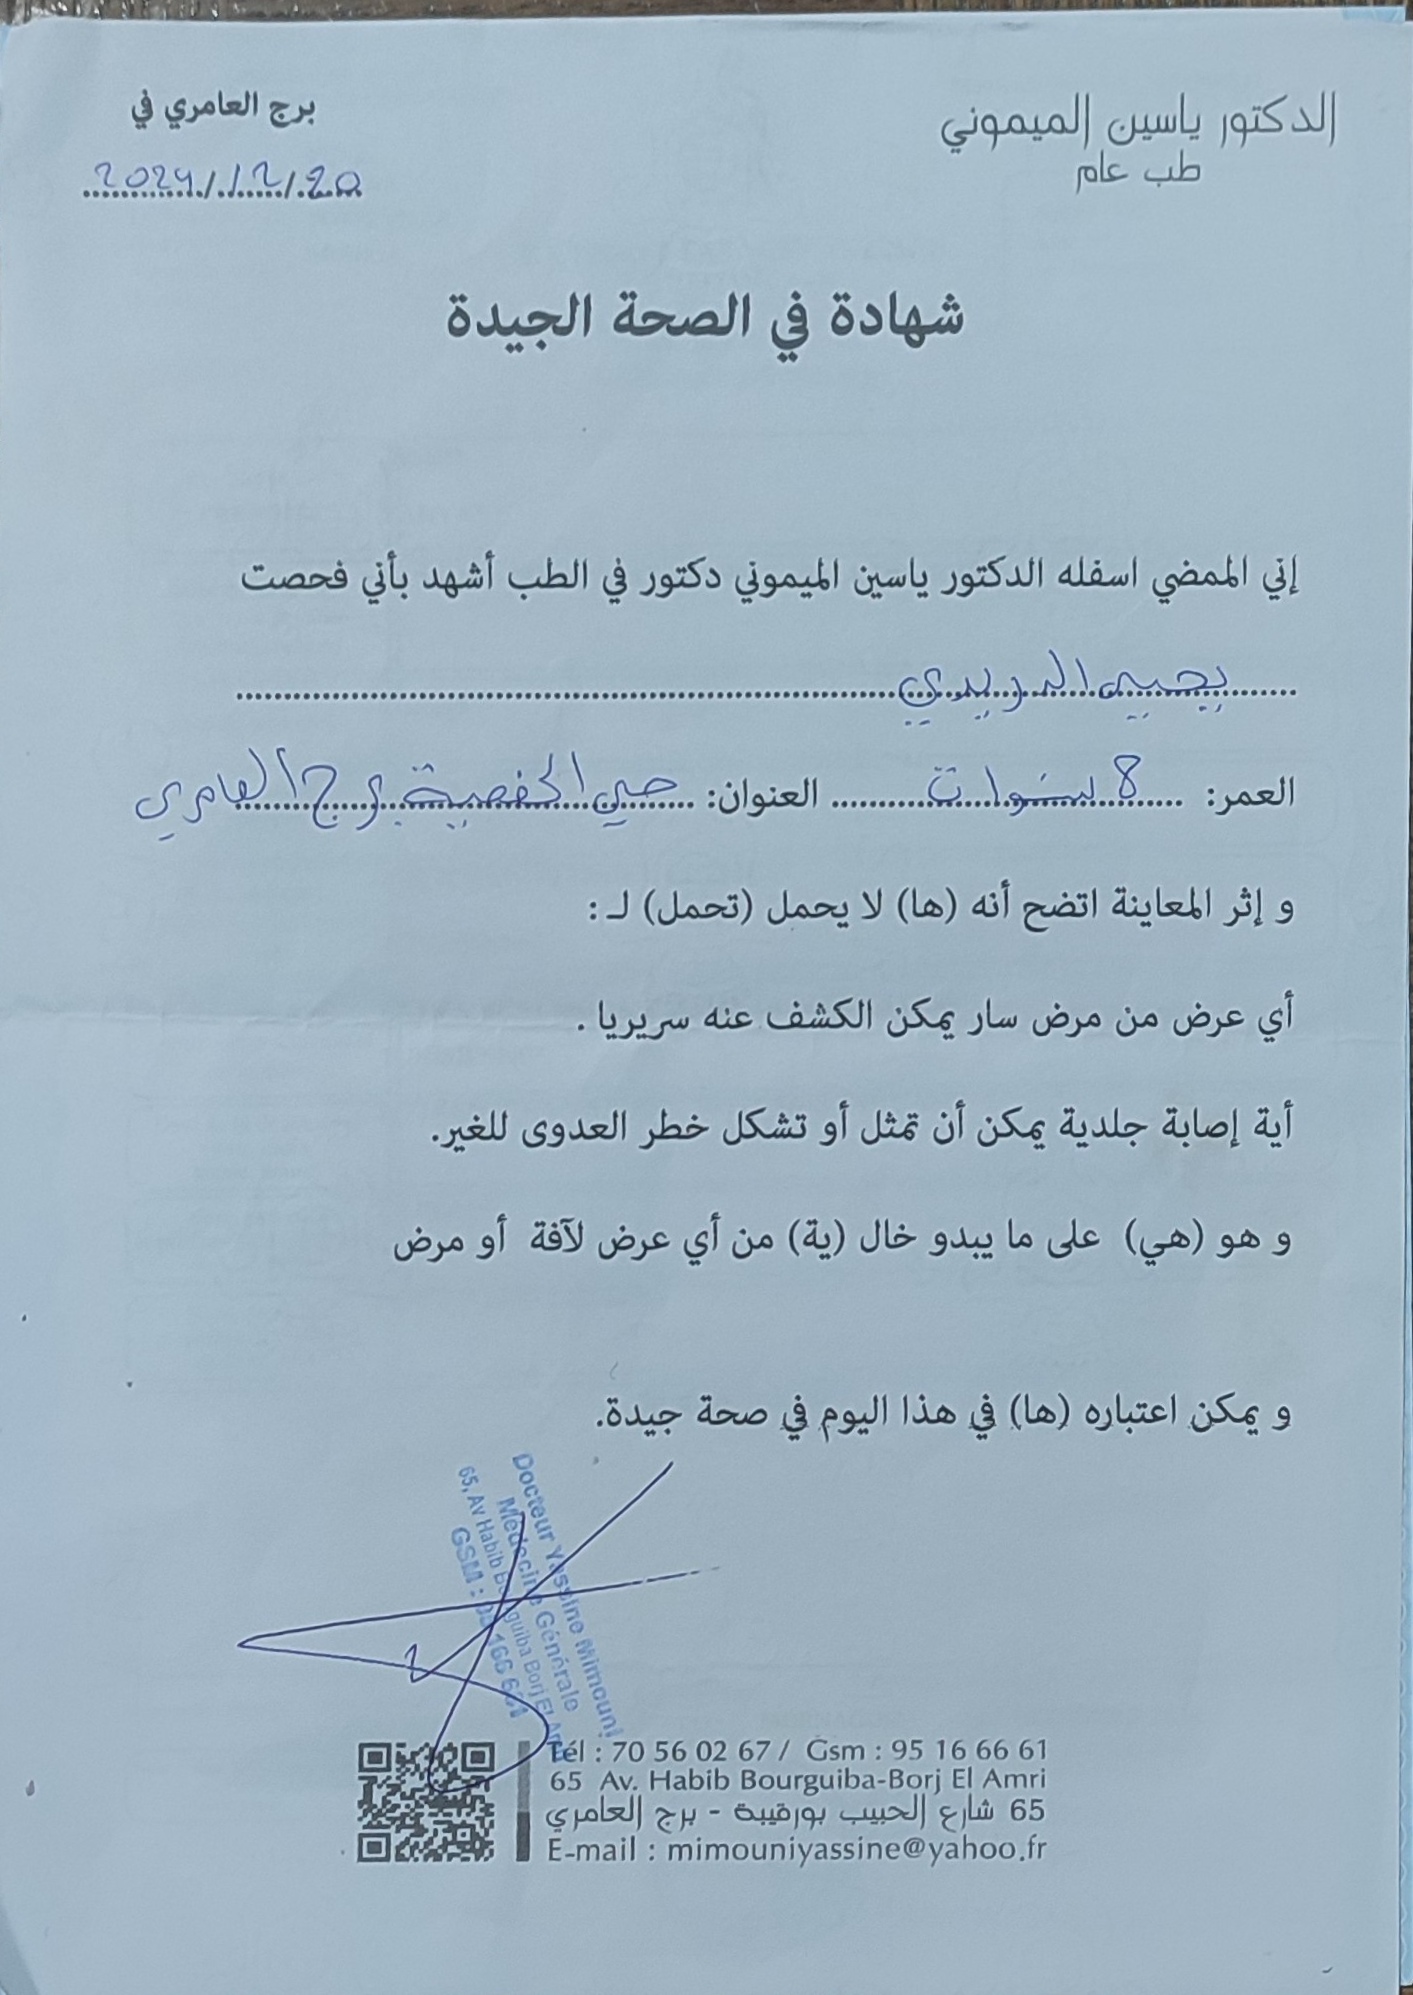 الدكتور ياسين الميموني
طب عام
برج العامري في
2024/12/20
شهادة في الصحة الجيدة
إني الممضي اسفله الدكتور ياسين الميموني دكتور في الطب أشهد بأني فحصت
يحيى الدريدي
العمر: 8 سنوات العنوان: حي الحفصية برج العامري
و إثر المعاينة اتضح أنه (ها) لا يحمل (تحمل) لـ :
أي عرض من مرض سار يمكن الكشف عنه سريريا .
أية إصابة جلدية يمكن أن تمثل أو تشكل خطر العدوى للغير.
و هو (هي) على ما يبدو خال (ية) من أي عرض لآفة أو مرض
و يمكن اعتباره (ها) في هذا اليوم في صحة جيدة.
Docteur Yassine Mimouni
Médecine Générale
65, Av Habib Bourguiba Borj El
GSM :
Tél : 70 56 02 67 / Gsm : 95 16 66 61
65 Av. Habib Bourguiba-Borj El Amri
65 شارع الحبيب بورقيبة - برج العامري
E-mail : mimouniyassine@yahoo.fr